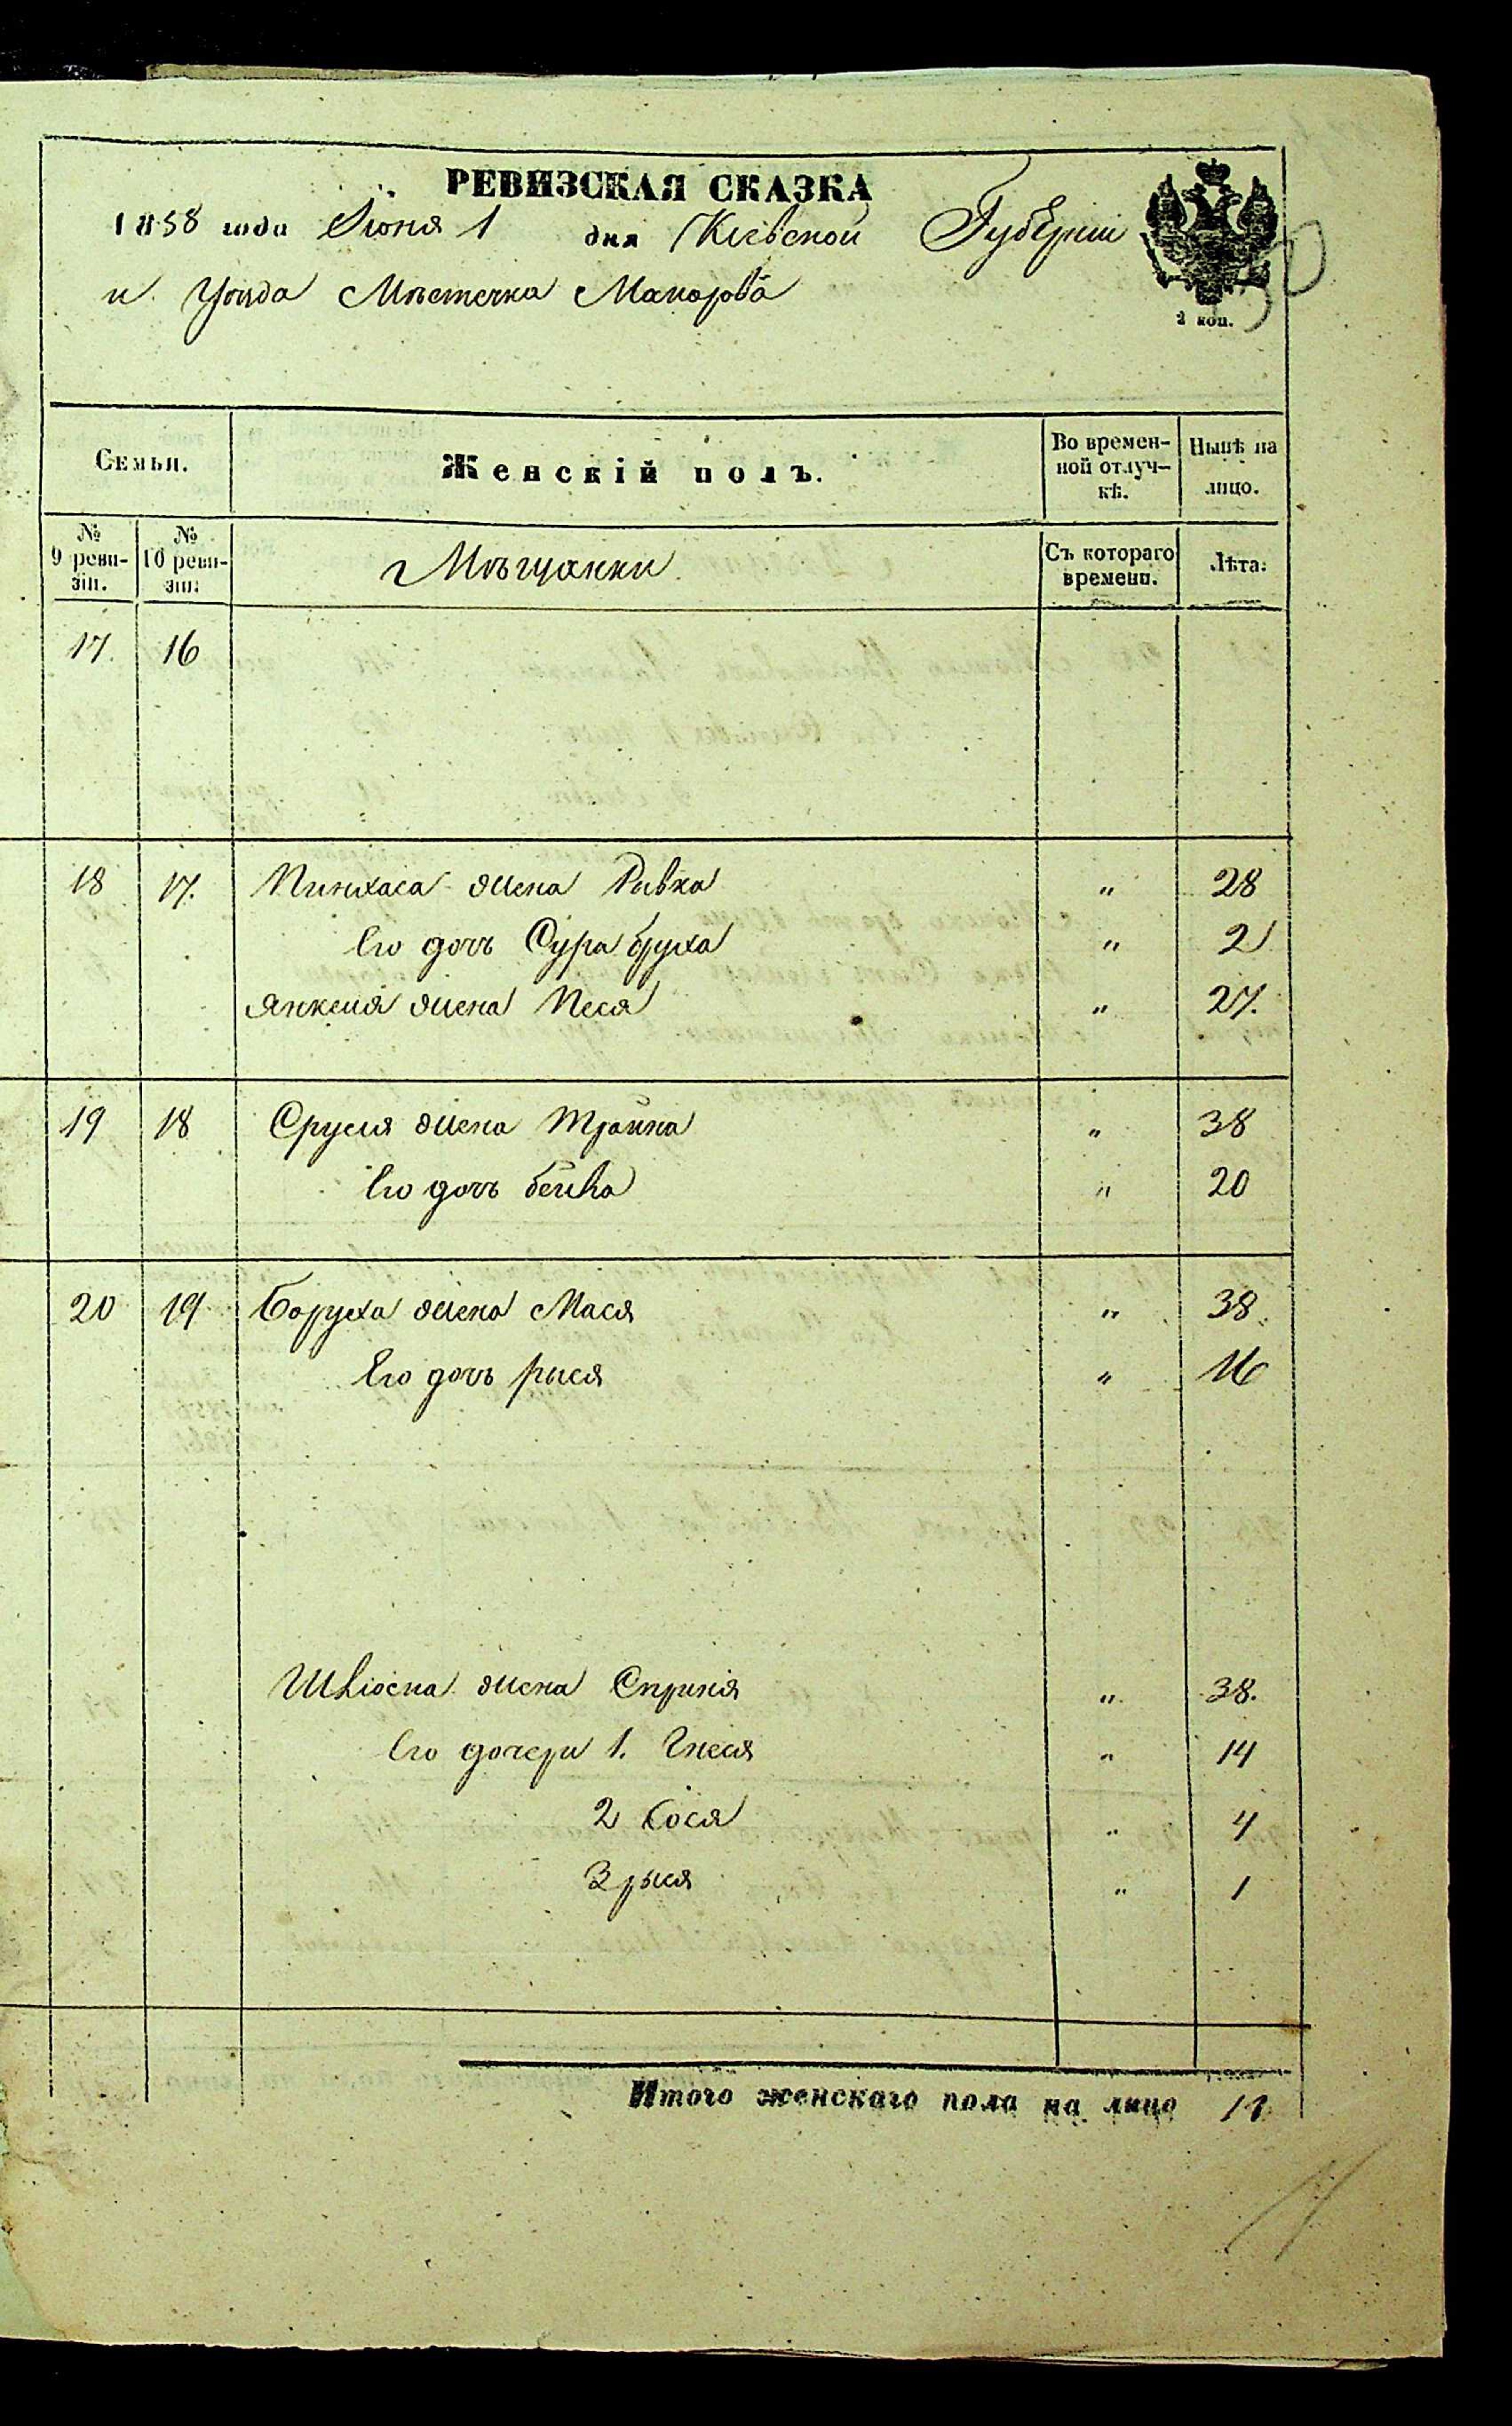 РЕВИЗСКАЯ СКАЗКА
1858 года Июня 1 дня Кіевской Губерніи
и Уѣзда Мѣстечка Макарова
2 коп.
Семьи.
Женскій полъ.
Во времен-
ной отлуч-
кѣ.
Нынѣ на
лицо.
№
9 реви-
зіи.
№
10 реви-
зіи.
Мѣщанки
Съ котораго
времени.
Лѣта.
17. 16
18 17. Пинхаса жена Рывка " 28
Его дочь Сура бруха " 2
Янкеля жена Песя " 27.
19 18 Сруля жена Трайна " 38
Его дочь бейла " 20
20 19 Боруха жена Мася " 38.
Его дочь рыся " 16
жена " 38.
Его дочери 1. Гнеся " 14
2 Сося " 4
3 рыся " 1
Итого женскаго пола на лицо 11
11